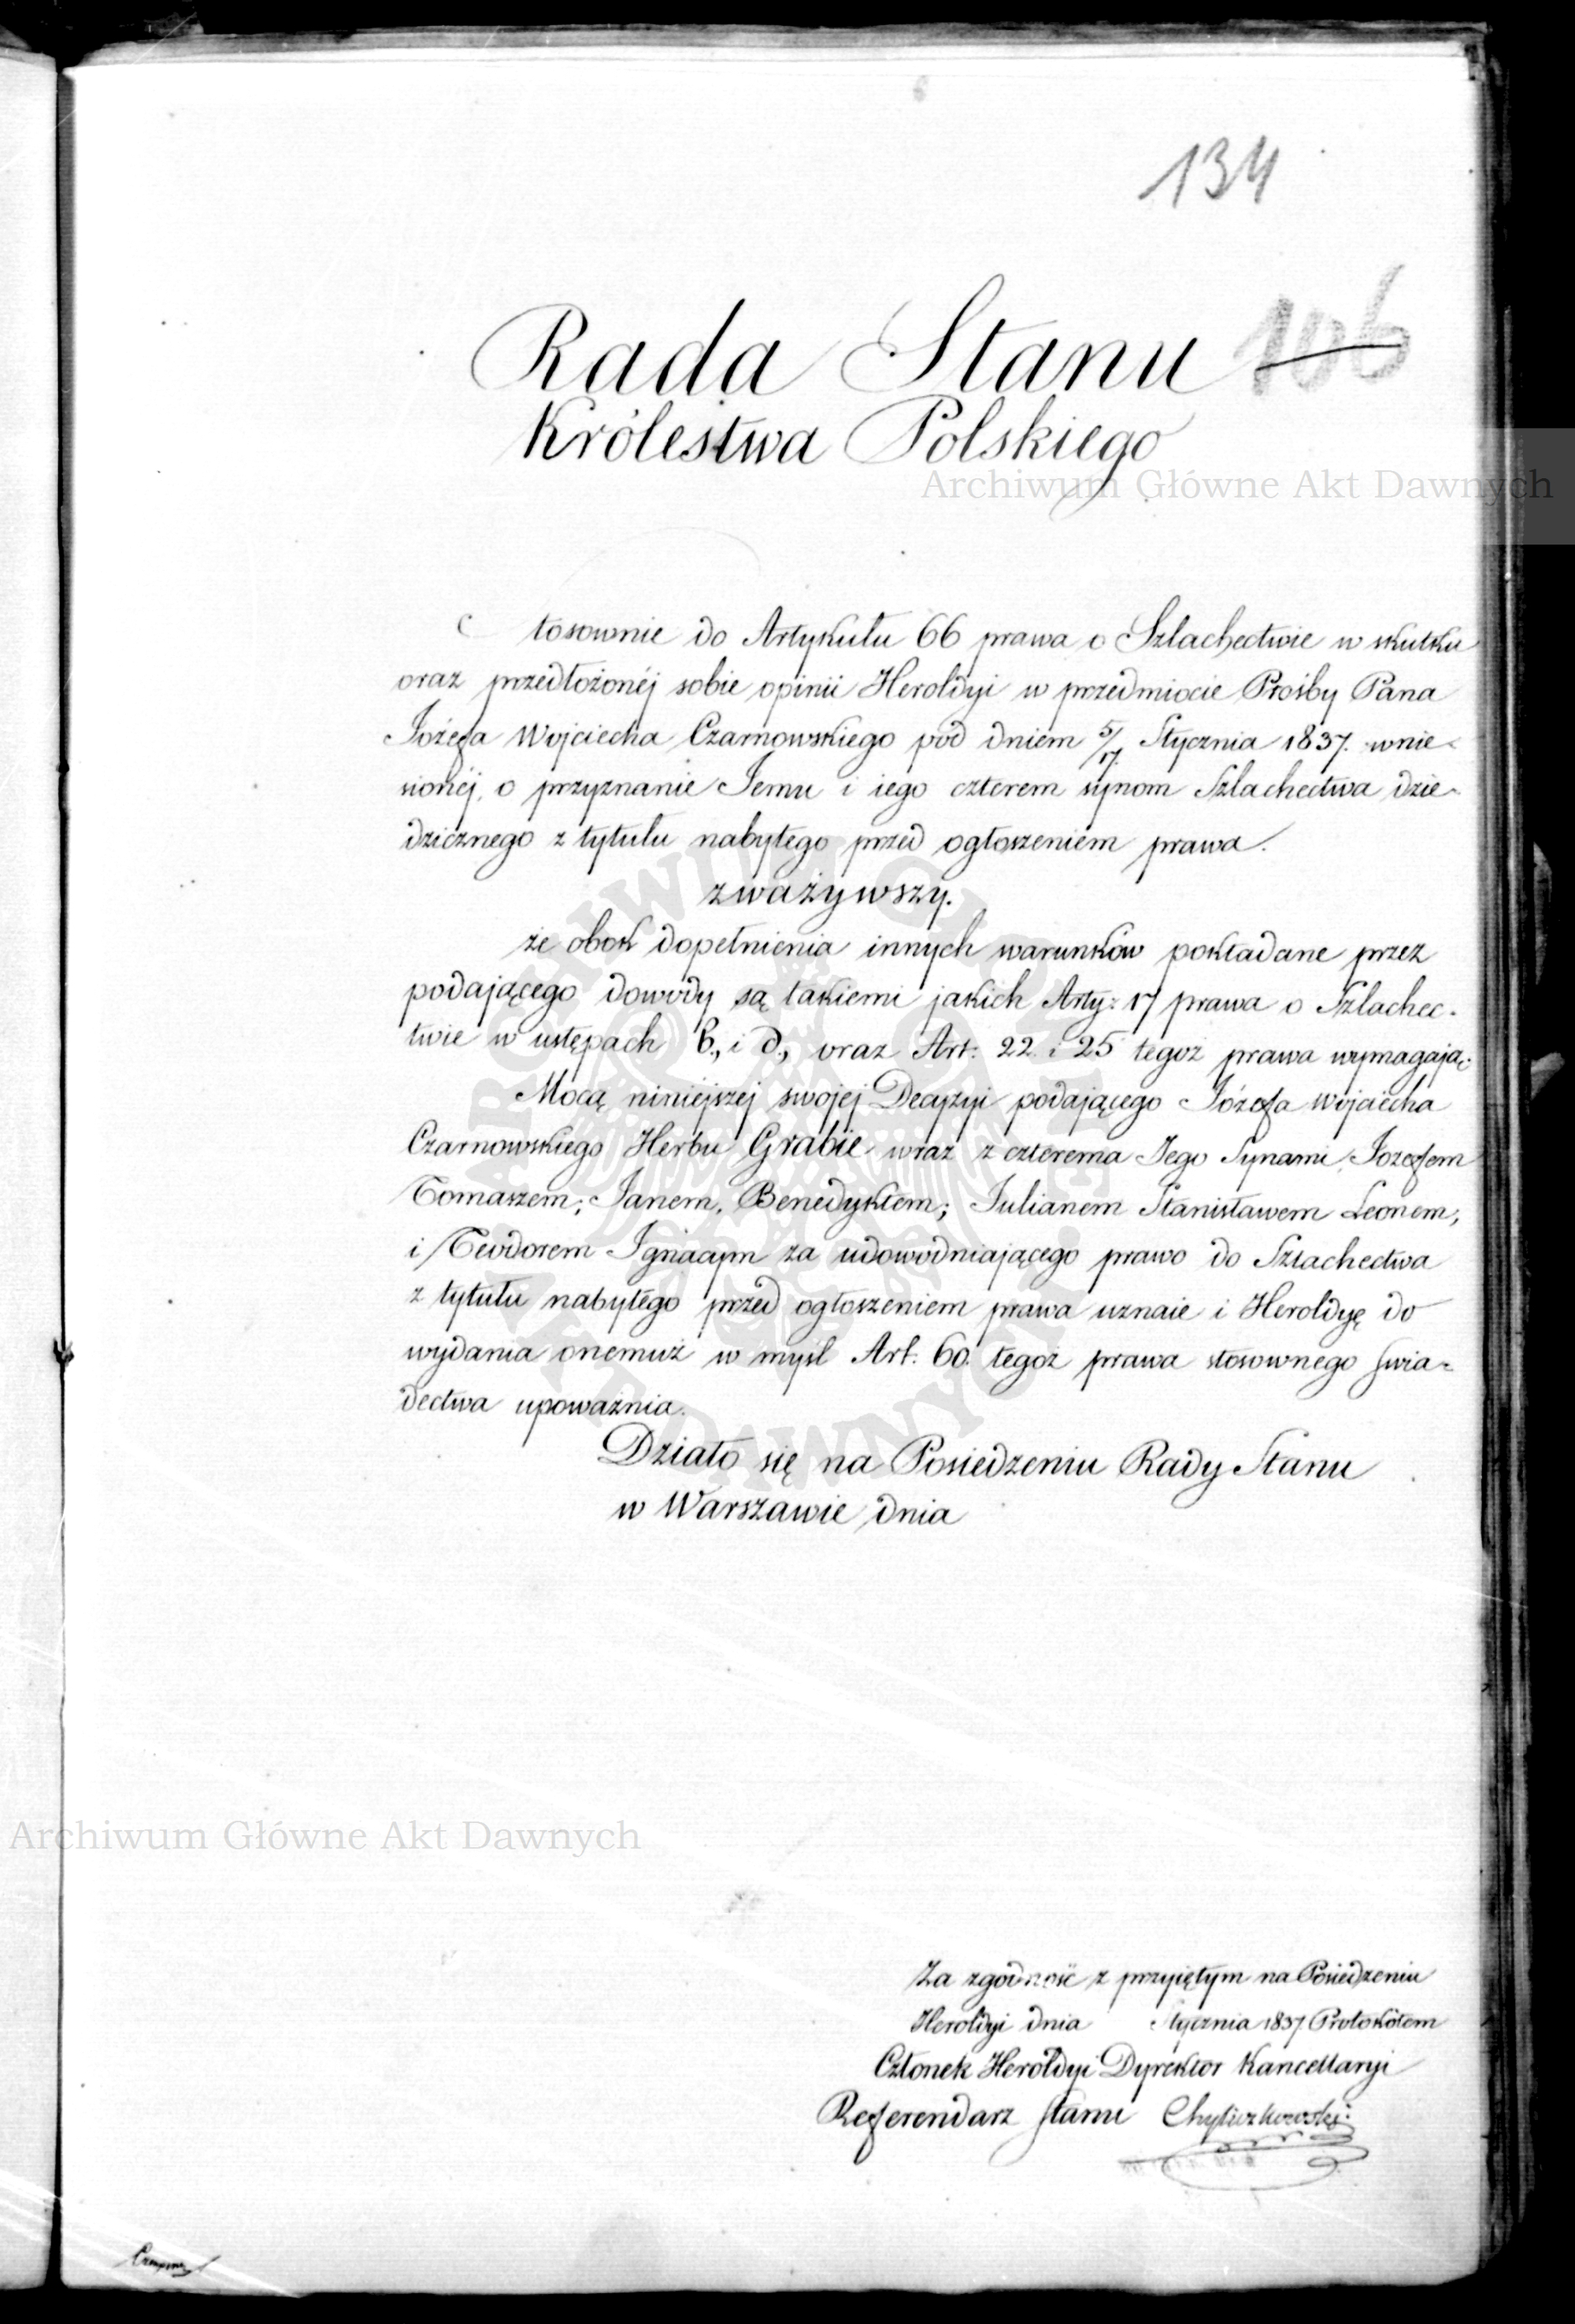 134
Rada Stanu 106
Królestwa Polskiego
Archiwum Główne Akt Dawnych
Stosownie do Artykułu 66 prawa o Szlachectwie w skutku
oraz przedłożonéj sobie opinii Heroldyi w przedmiocie Prośby Pana
Józefa Wojciecha Czarnowskiego pod dniem 5/17. Stycznia 1837. wnie-
sionéj, o przyznanie Jemu i iego czterem synom Szlachectwa dzie-
dzicznego z tytułu nabytego przed ogłoszeniem prawa.
zważywszy.
że obok dopełnienia innych warunków pokładane przez
podającego dowody są takiemi jakich Arty: 17 prawa o Szlachec-
twie w ustępach b., i d., oraz Art: 22. i 25 tegoż prawa wymagają;
Mocą niniejszej swojej Decyzyi podającego Józefa Wojciecha
Czarnowskiego Herbu Grabie wraz z czterema Jego Synami, Józefem
Tomaszem; Janem, Benedyktem; Julianem Stanisławem Leonem;
i Teodorem Ignacym za udowodniającego prawo do Szlachectwa
z tytułu nabytego przed ogłoszeniem prawa uznaie i Heroldyę do
wydania onemuż w myśl Art. 60. tegoż prawa stosownego świa-
dectwa upoważnia.
Działo się na Posiedzeniu Rady Stanu
w Warszawie dnia
Archiwum Główne Akt Dawnych
Za zgodność z przyiętym na Posiedzeniu
Heroldyi dnia Stycznia 1837 Protokółem
Członek Heroldyi Dyrektor Kancellaryi
Referendarz Stanu Chyliczkowski.